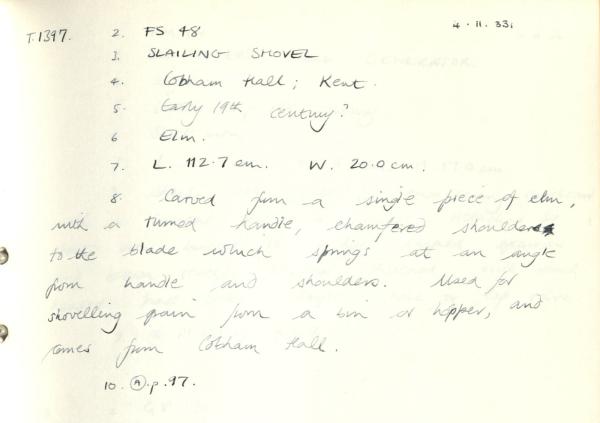 T.1397. 2. FS 48 4.11.33i
3. SLAILING SHOVEL
4. Cobham Hall; Kent.
5. Early 19th century?
6 Elm.
7. L. 112.7 cm. W. 20.0 cm.
8. Carved from a single piece of elm,
with a turned handle, chamfered shoulders
to the blade which springs at an angle
from handle and shoulders. Used for
shovelling grain from a bin or hopper, and
comes from Cobham Hall.
10. A.p.97.